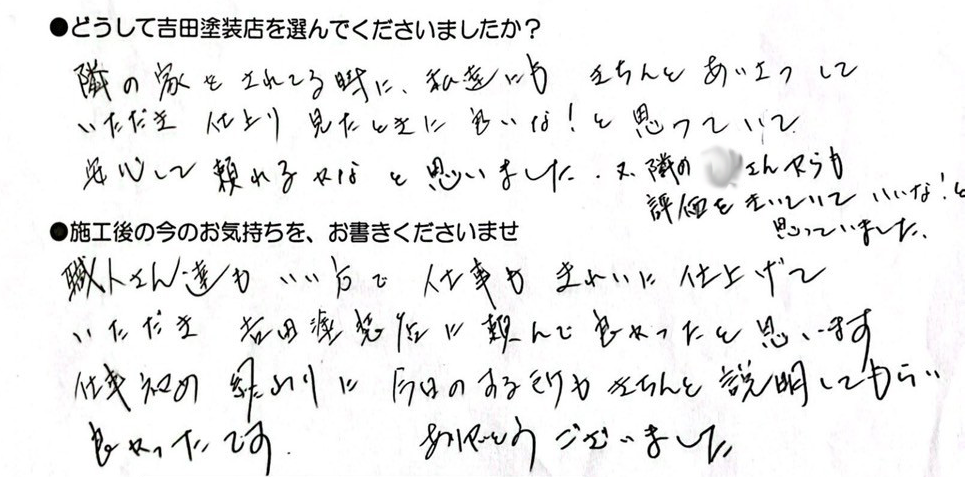 ●どうして吉田塗装店を選んでくださいましたか？
隣の家をされてる時に、私達にも きちんと あいさつ して
いただき 仕上り 見たときに 良いな！と 思っていて
安心して 頼れるかな と 思いました. 又、隣の さんからも
評価をきいていて いいな！と
思っていました.
●施工後の今のお気持ちを、お書きくださいませ
職人さん達も いい方で 仕事も きれいに 仕上げて
いただき 吉田塗装店に 頼んで 良かったと 思います
仕事 終わりに 今日のする所も きちんと 説明してもらい
良かったです. ありがとう ございました